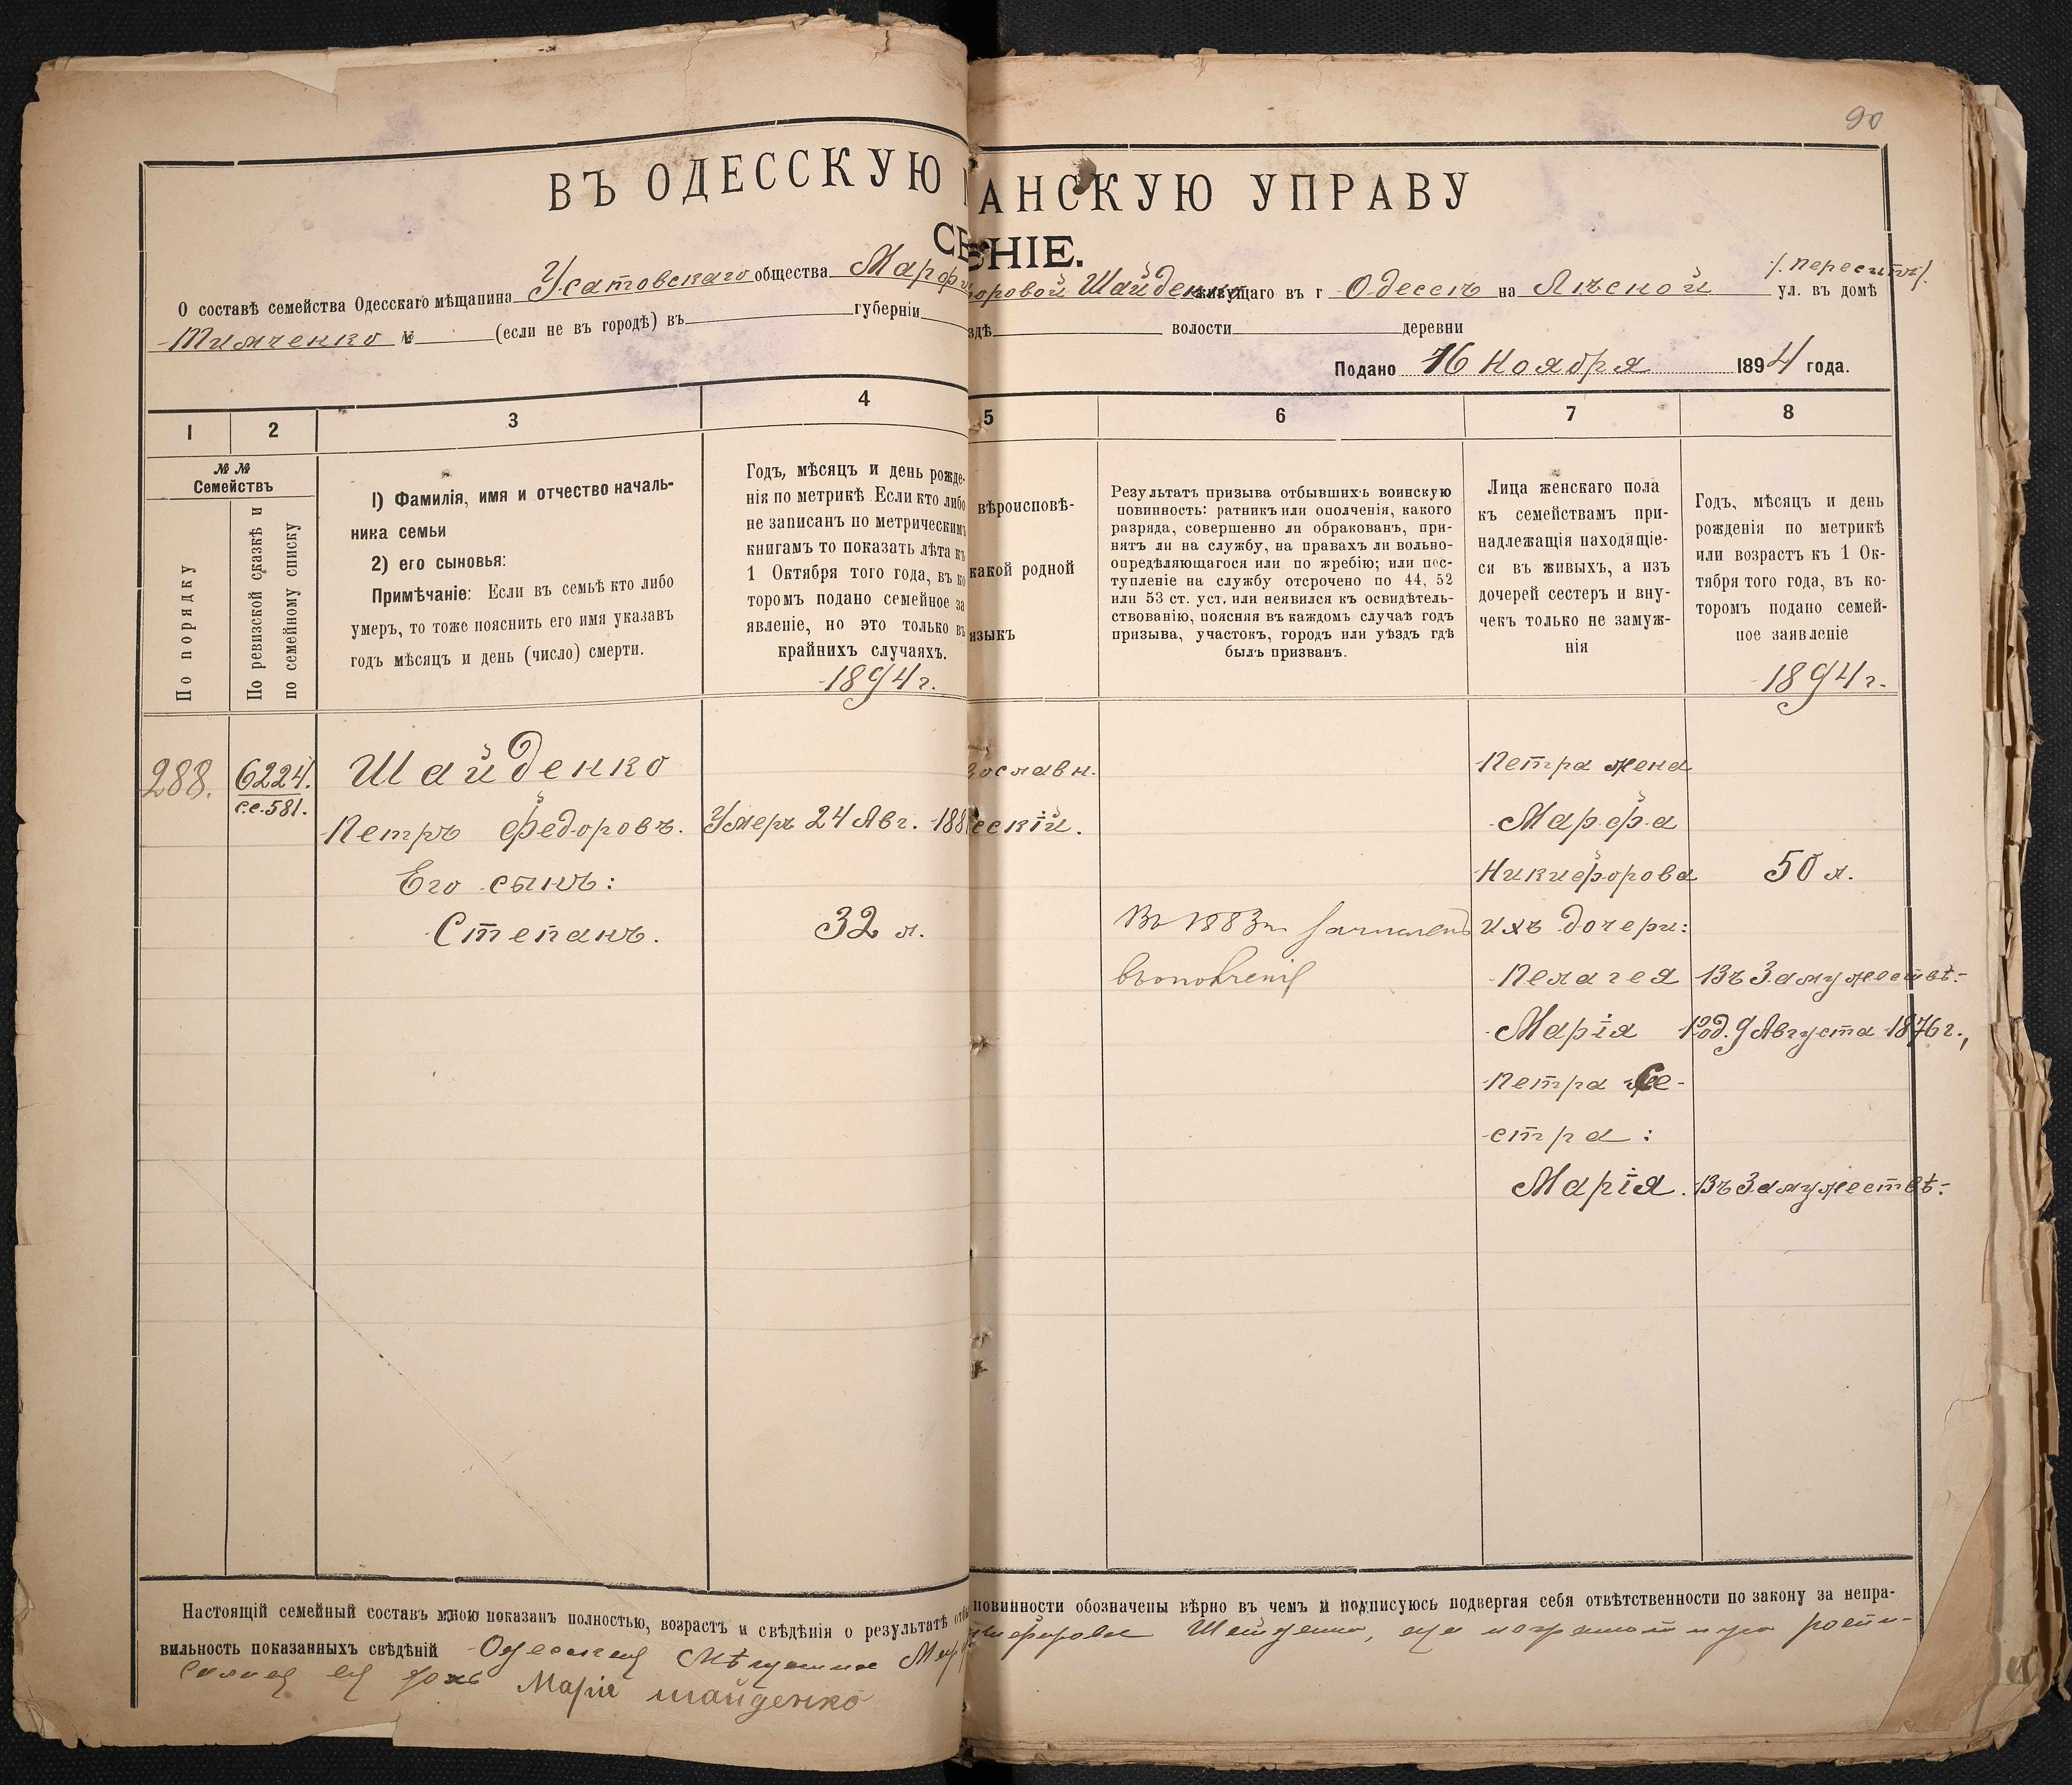 90
ВЪ ОДЕССКУЮ АНСКУЮ УПРАВУ
СЕНІЕ.
О составѣ семейства Одесскаго мѣщанина Усатовскаго общества Марф оровой Шайденко живущаго въ г Одессѣ на Лѣсной /. Пересыпь/. ул. въ домѣ
Тимченко № (если не въ городѣ) въ губерніи здѣ волости деревни
Подано 16 Ноября 1894 года.
1 2 3 4 5 6 7 8
№ №
Семействъ
По порядку
По ревизской сказкѣ и
по семейному списку
1) Фамилія, имя и отчество началь-
ника семьи
2) его сыновья:
Примѣчаніе: Если въ семьѣ кто либо
умеръ, то тоже пояснить его имя указавъ
годъ мѣсяцъ и день (число) смерти.
Годъ, мѣсяцъ и день рожде-
нія по метрикѣ Если кто либо
не записанъ по метрическимъ
книгамъ то показать лѣта къ
1 Октября того года, въ ко
торомъ подано семейное за
явленіе, но это только въ
крайнихъ случаяхъ.
1894 г.
вѣроисповѣ-
какой родной
языкъ
Результатъ призыва отбывшихъ воинскую
повинность: ратникъ или ополченія, какого
разряда, совершенно ли обракованъ, при-
нятъ ли на службу, на правахъ ли вольно-
опредѣляющагося или по жребію; или пос-
тупленіе на службу отсрочено по 44, 52
или 53 ст. уст. или неявился къ освидѣтель-
ствованію, поясняя въ каждомъ случаѣ годъ
призыва, участокъ, городъ или уѣздъ гдѣ
былъ призванъ.
Лица женскаго пола
къ семействамъ при-
надлежащія находящіе-
ся въ живыхъ, а изъ
дочерей сестеръ и вну-
чекъ только не замуж-
нія
Годъ, мѣсяцъ и день
рожденія по метрикѣ
или возрастъ къ 1 Ок-
тября того года, въ ко-
торомъ подано семей-
ное заявленіе
1894 г.
288. 6224. Шайденко зославн. Петра жена
с.с. 581.
Петръ Федоровъ. Умеръ 24 Авг. 188 сскій. Марфа
Его сынъ: Никифорова 50 л.
Степанъ. 32 л. Въ 1883 г. зачисленъ ихъ дочери:
въ ополченіе Пелагея Въ Замужествѣ.-
Марія Род. 9 Августа 1876 г.,
Петра Се-
стра:
Марія. Въ Замужествѣ.-
Настоящій семейный составъ мною показанъ полностью, возрастъ и свѣдѣнія о результатѣ повинности обозначены вѣрно въ чемъ и подписуюсь подвергая себя отвѣтственности по закону за непра-
вильность показанныхъ свѣдѣній Одесская Мѣщанка Мар кифорова Шайденко, а роспи-
салась ея дочь Марія Шайденко